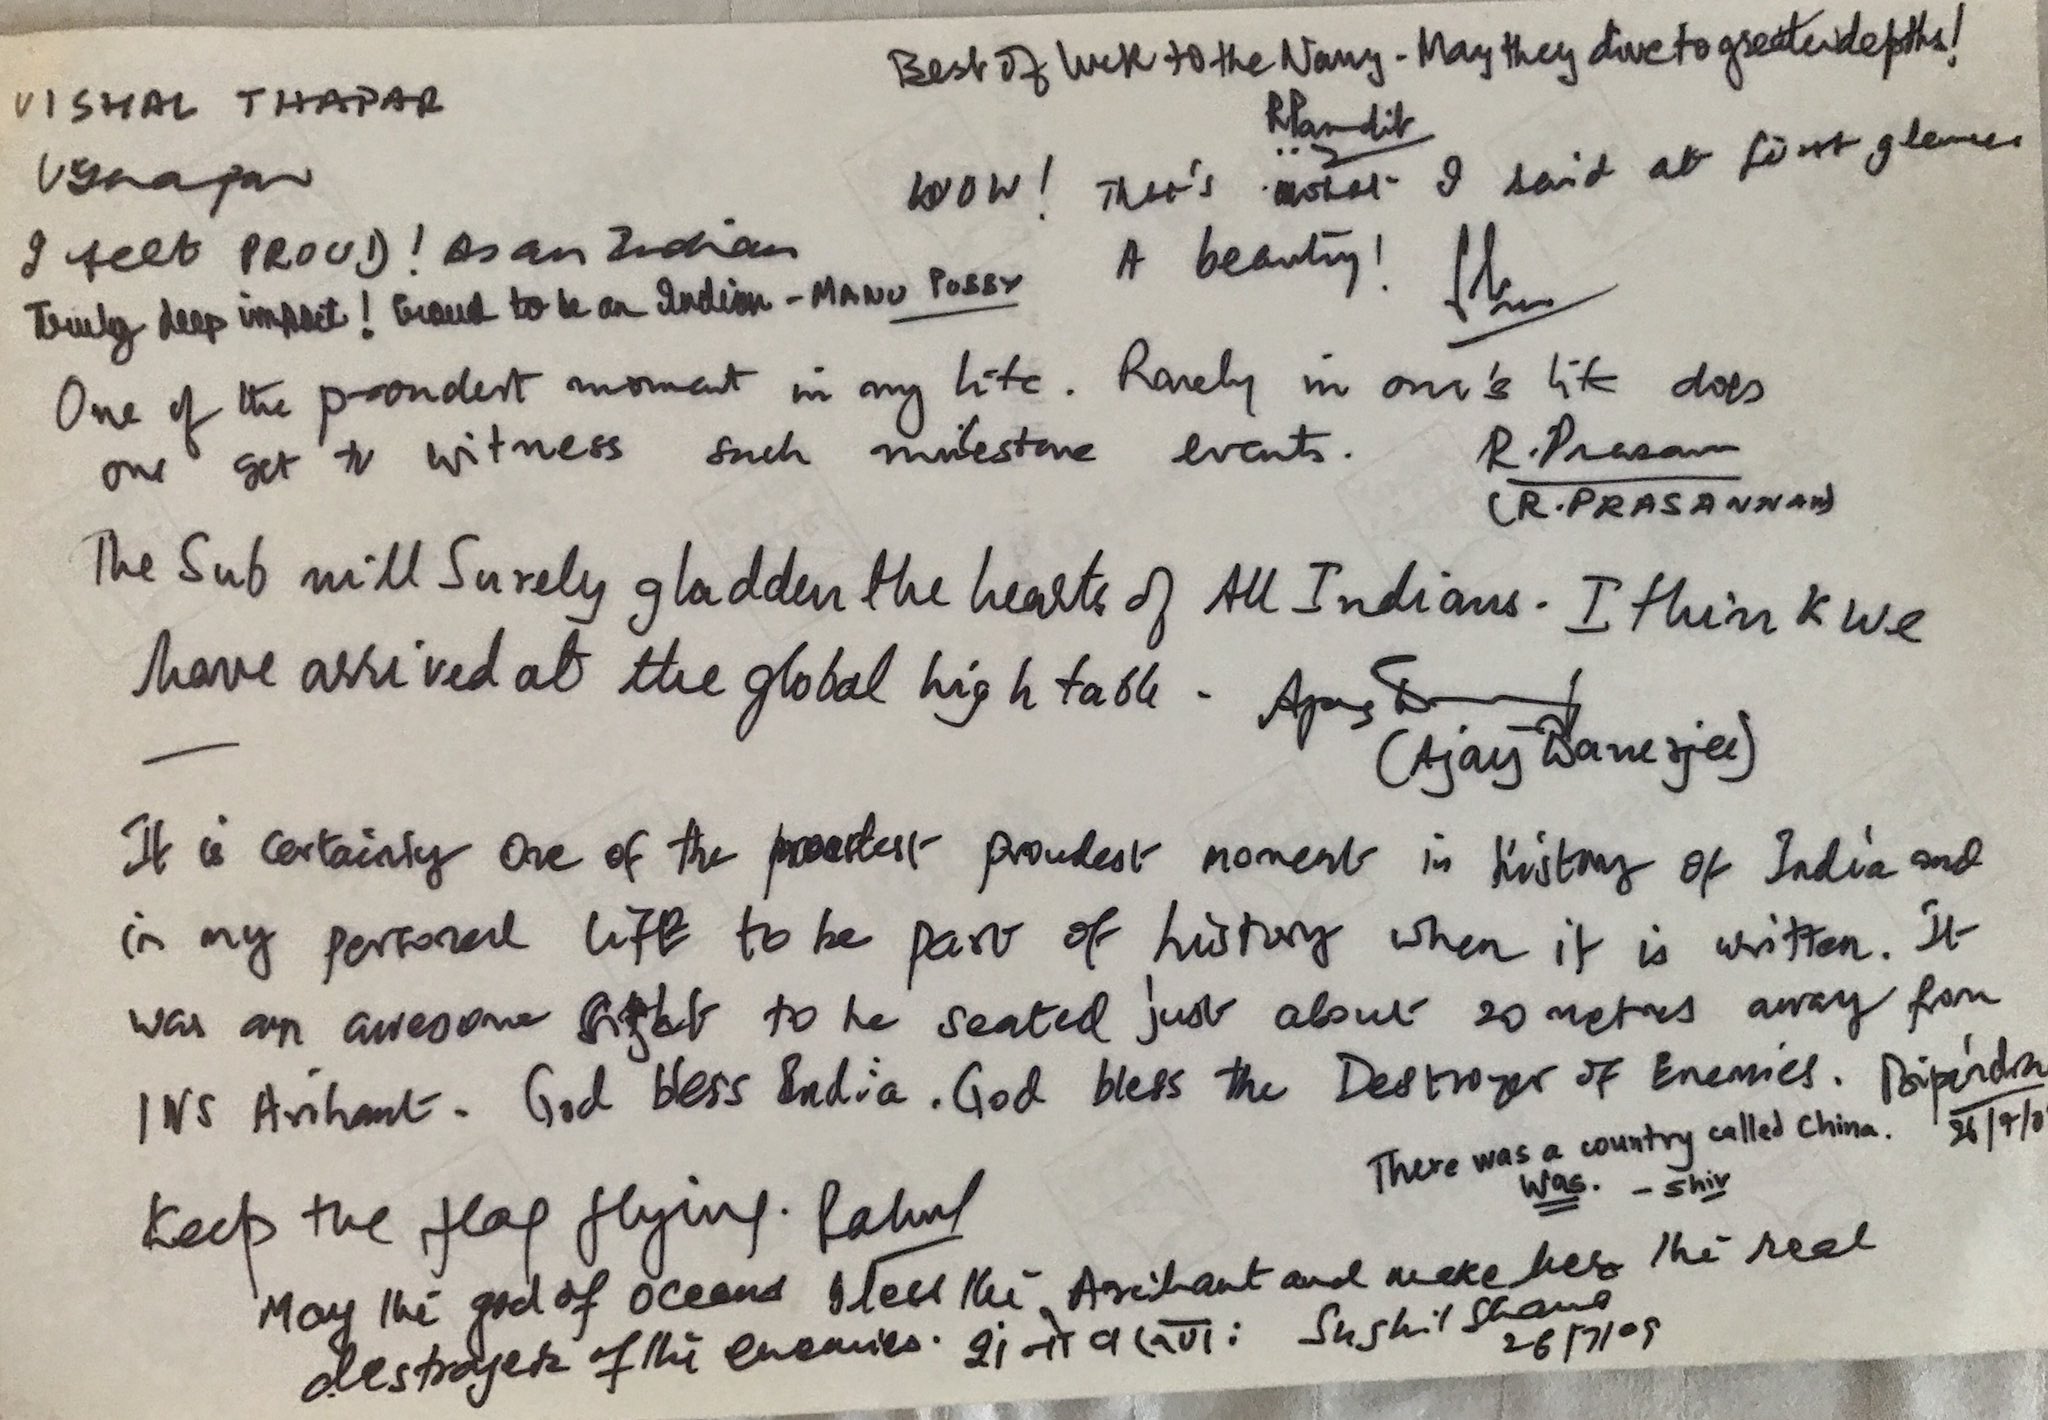 Best of luck to the Navy - May they dive to greater depths!
RPandit
VISHAL THAPAR
WOW! That's what I said at first glance
A beauty!
I felt PROUD! As an Indian
Truly deep impact! Proud to be an Indian - MANU PUBBY
One of the proudest moment in my life. Rarely in one's life does
one get to witness such milestone events.
R. Prasannan
(R. PRASANNAN)
The Sub will Surely gladden the hearts of All Indians. I think we
have arrived at the global high table.
Ajay
(Ajay Banerjee)
It is certainly one of the proudest moment in history of India and
in my personal life to be part of history when it is written. It
was an awesome sight to be seated just about 20 metres away from
INS Arihant. God bless India. God bless the Destroyer of Enemies.
26/7/0
There was a country called China.
Was. - Shiv
Keep the flag flying. Rahul
May the god of oceans bless the Arihant and make her the real
destroyer of the enemies. शं नो वरुणः Sushil Sharma
26/7/09